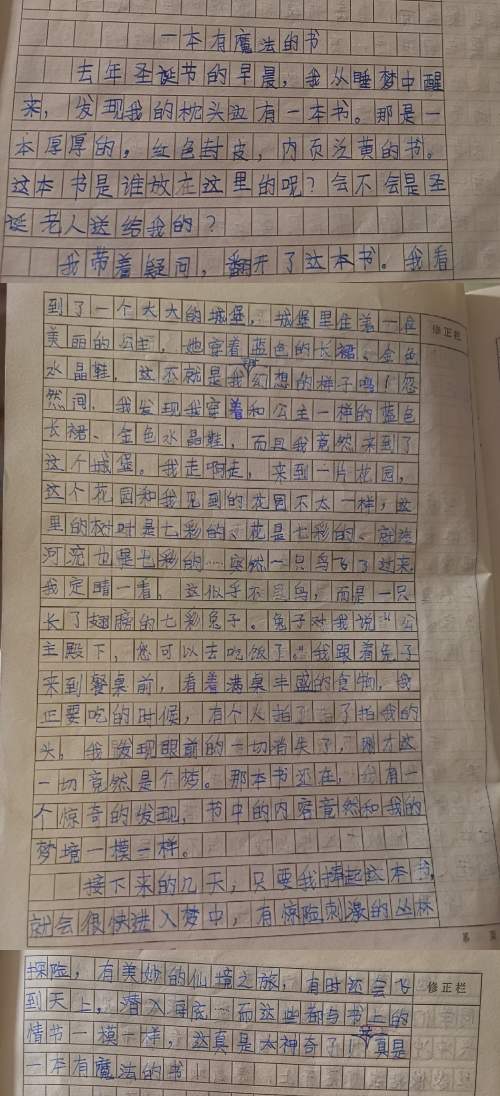 一本有魔法的书
去年圣诞节的早晨，我从睡梦中醒
来，发现我的枕头边有一本书。那是一
本厚厚的，红色封皮，内页泛黄的书。
这本书是谁放在这里的呢？会不会是圣
诞老人送给我的？
我带着疑问，翻开了这本书。我看
到了一个大大的城堡，城堡里住着一位
修正栏
美丽的公主，她穿着蓝色的长裙、金色
水晶鞋，这不就是我幻想的样子吗！忽
然间，我发现我穿着和公主一样的蓝色
长裙、金色水晶鞋，而且我竟然来到了
这个城堡。我走啊走，来到一片花园，
这个花园和我见到的花园不太一样，这
里的树叶是七彩的、花是七彩的、就连
河流也是七彩的……突然一只鸟飞了过来，
我定睛一看，这似乎不是鸟，而是一只
长了翅膀的七彩兔子。兔子对我说“公
主殿下，您可以去吃饭了。”我跟着兔子
来到餐桌前，看着满桌丰盛的食物，我
正要吃的时候，有个人拍了拍我的
头。我发现眼前的一切消失了，刚才这
一切竟然是个梦。那本书还在，有一
个惊奇的发现，书中的内容竟然和我的
梦境一模一样。
接下来的几天，只要我捧起这本书，
就会很快进入梦中，有惊险刺激的丛林
第 页
探险，有美妙的仙境之旅，有时还会飞
修正栏
到天上，潜入海底…而这些都与书上的
情节一模一样，这真是太神奇了！真是
一本有魔法的书